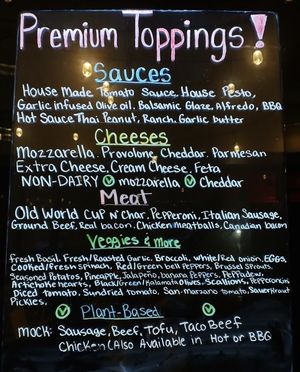 Premium Toppings!
Sauces
House Made Tomato Sauce, House Pesto,
Garlic infused Olive oil, Balsamic Glaze, Alfredo, BBQ
Hot Sauce Thai Peanut, Ranch, Garlic butter
Cheeses
Mozzarella, Provolone, Cheddar, Parmesan
Extra Cheese, Cream Cheese, Feta
NON-DAIRY mozzarella Cheddar
Meat
Old World Cup N' Char, Pepperoni, Italian Sausage,
Ground Beef, Real bacon, Chicken, Meatballs, Canadian bacon
Veggies & more
fresh Basil, Fresh/Roasted Garlic, Broccoli, white/red onion, EGGS,
Cooked/Fresh spinach, Red/Green bell Peppers, Brussel Sprouts,
Seasoned Potatos, Pineapple, Jalapeno, banana Peppers, Peppadew,
Artichoke hearts, Black/Green/Kalamata Olives, Scallions, Pepperoncini
Diced tomato, Sundried tomato, San-marzano tomato, Sauerkraut
Pickles,
Plant-Based
Mock: Sausage, Beef, Tofu, Taco Beef
Chicken (Also Available in Hot or BBQ